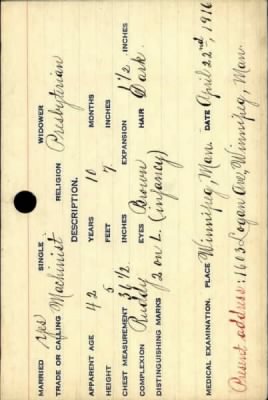 MARRIED yes SINGLE WIDOWER
TRADE OR CALLING Machinist RELIGION Presbyterian
DESCRIPTION.
APPARENT AGE 42 YEARS 10 MONTHS
HEIGHT 5 FEET 7 INCHES
CHEST MEASUREMENT 36 1/2 INCHES EXPANSION 1 1/2 INCHES
COMPLEXION Ruddy EYES Brown HAIR Dark
DISTINGUISHING MARKS 2 on L. (infancy)
MEDICAL EXAMINATION. PLACE Winnipeg, Man. DATE April 22nd, 1916
Present address: 1603 Logan Ave, Winnipeg, Man.